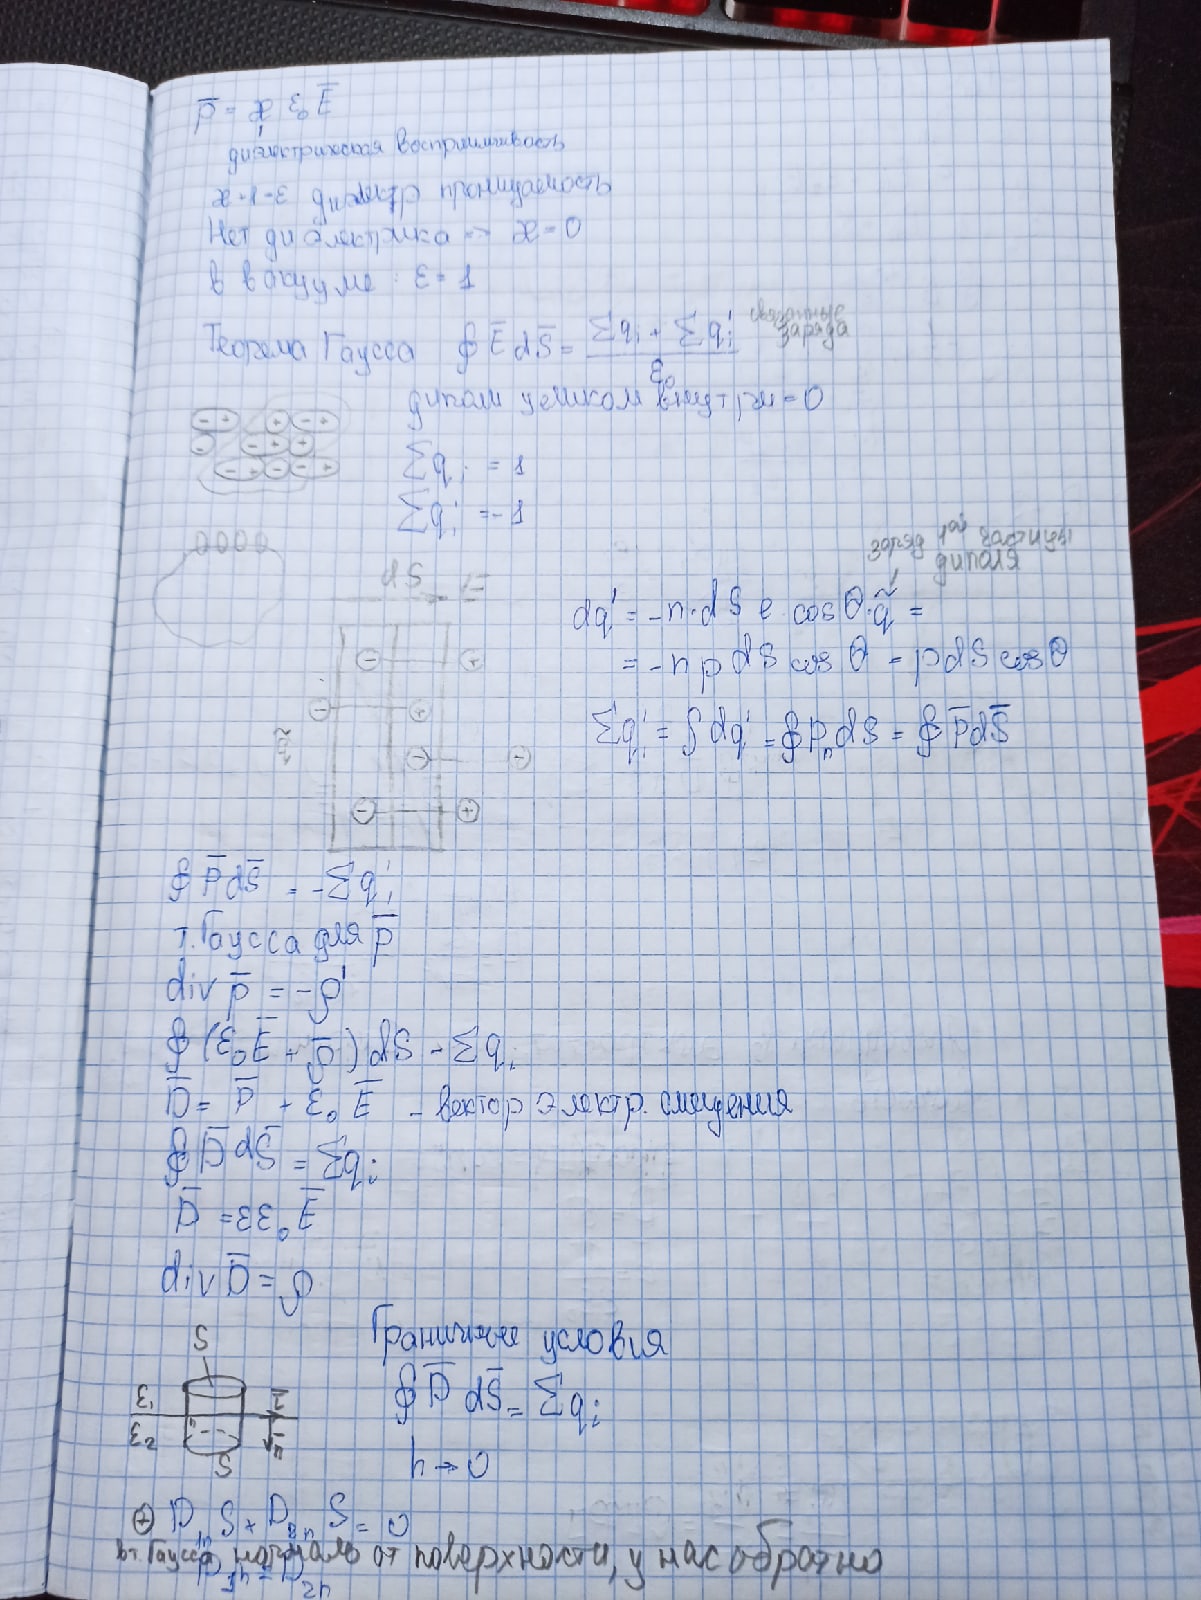 P̅ = æ ε₀ E̅
диэлектрическая восприимчивость
æ = 1 - ε диэлектр проницаемость
Нет диэлектрика -> æ = 0
в вакууме: ε = 1
Теорема Гаусса ∮ E̅ dS̅ = (Σqᵢ + Σq'ᵢ) / ε₀ связанные заряда
диполи целиком внутри = 0
Σqᵢ = 1
Σqᵢ = -1
заряд 1ой частицы диполя
dq' = -n·dS ℓ·cosθ·q̃ =
= -n p dS cosθ = pdS cosθ
Σq'ᵢ = ∫dq' = ∮PₙdS = ∮P̅dS̅
∮ P̅dS̅ = -Σq'ᵢ
т. Гаусса для p̅
div p̅ = -ρ'
∮ (ε₀E̅ + P̅) dS = Σqᵢ
D̅ = P̅ + ε₀ E̅ - вектор электр. смещения
∮ D̅ dS̅ = Σqᵢ
D̅ = εε₀E̅
div D̅ = ρ
Граничные условия
∮ D̅ dS̅ = Σqᵢ
h → 0
S
ε₁
ε₂
S
⊕ D₁ₙ S + D₂ₙ S = 0
в т. Гаусса нормаль от поверхности, у нас обратно